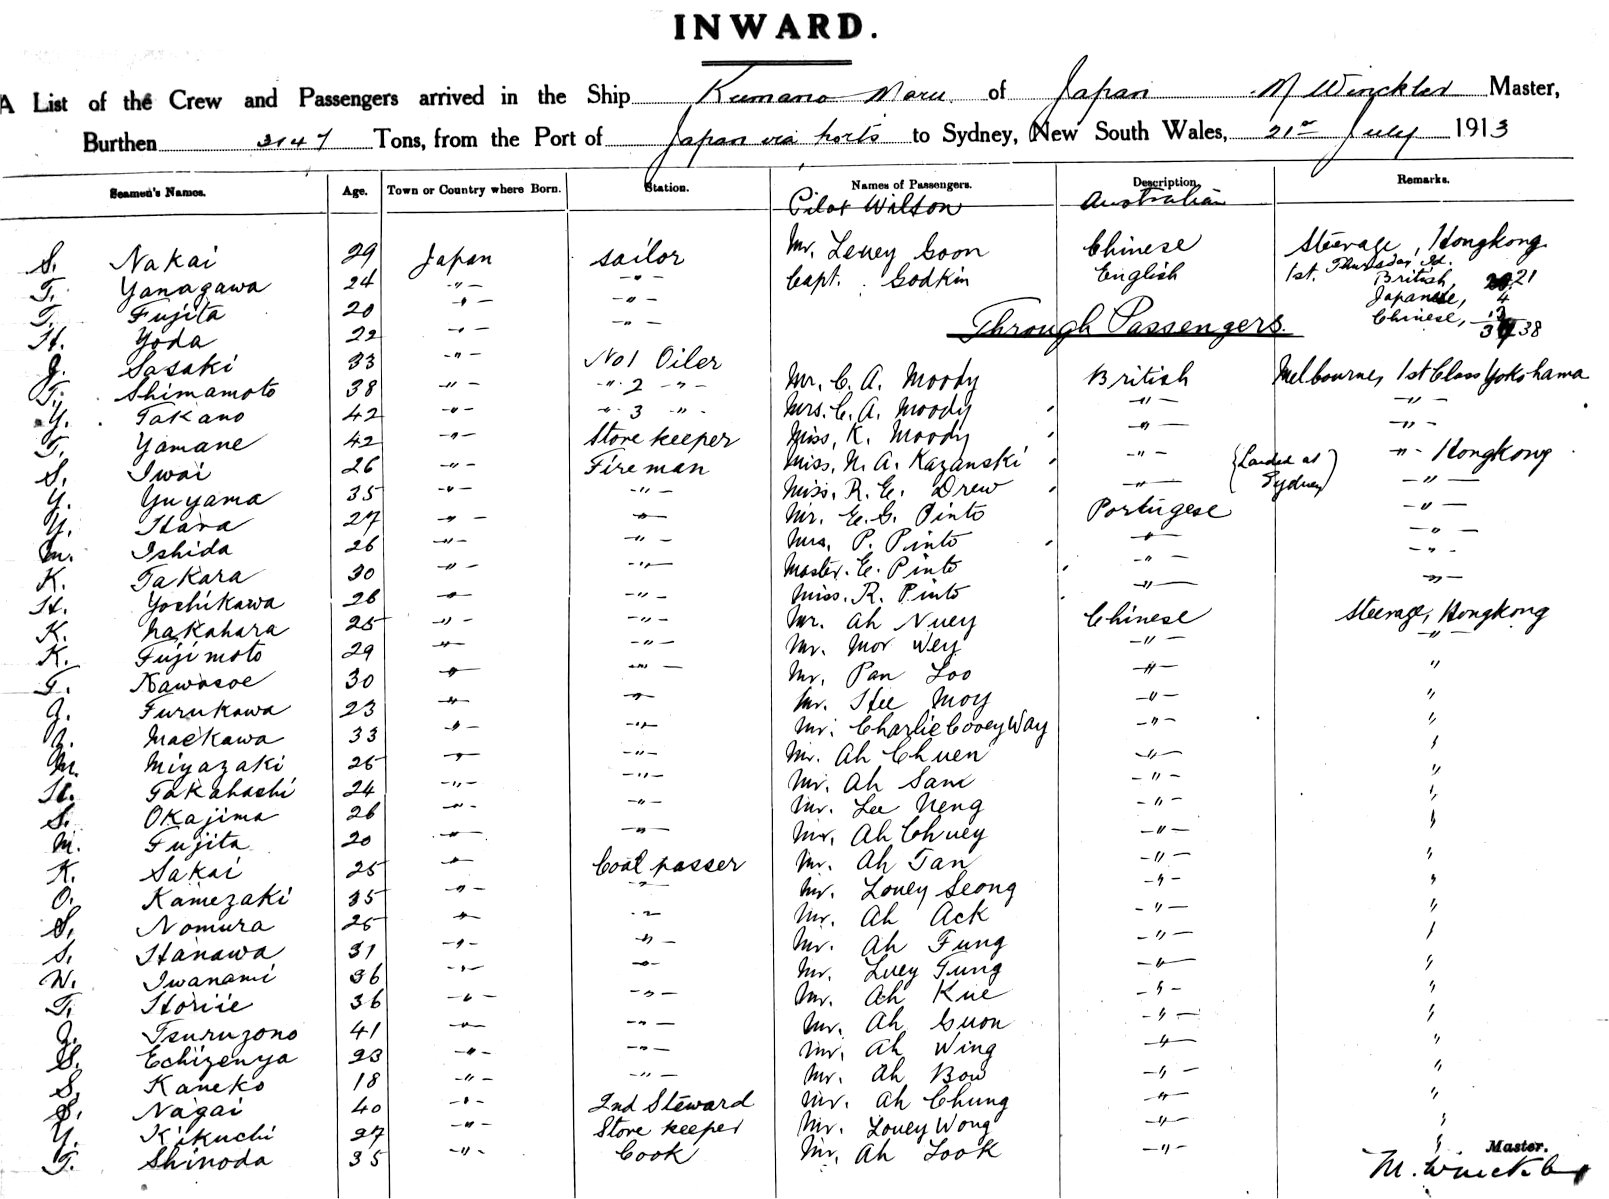 INWARD.
A List of the Crew and Passengers arrived in the Ship Kumano Maru of Japan M Winckler Master,
Burthen 3147 Tons, from the Port of Japan via ports to Sydney, New South Wales, 21st July 1913
Seamen's Names. Age. Town or Country where Born. Station. Names of Passengers. Description Remarks.
Pilot Wilson Australian
S. Nakai 29 Japan sailor Mr. Louey Goon Chinese Steerage, Hongkong
T. Yanagawa 24 -"- -"- Capt. Godkin English 1st. Thursday Id.
British, 21
T. Fujita 20 -"- -"- Japanese, 4
H. Yoda 22 -"- -"- Through Passengers. Chinese, 13
38
J. Sasaki 33 -"- No 1 Oiler
T. Shimamoto 38 -"- -"- 2 -"- Mr. C. A. Moody British Melbourne, 1st Class Yokohama
Y. Takano 42 -"- -"- 3 -"- Mrs. C. A. Moody -"- -"-
T. Yamane 42 -"- Store keeper Miss, K. Moody -"- -"-
S. Iwai 26 -"- Fireman Miss, N. A. Kazanski -"- (Landed at -"- Hongkong
Y. Yuyama 35 -"- -"- Miss, R. E. Drew -"- Sydney) -"-
Y. Hara 27 -"- -"- Mr. E. C. Pinto Portugese -"-
M. Ishida 26 -"- -"- Mrs, P. Pinto -"- -"-
K. Takara 30 -"- -"- Master. E. Pinto -"- -"-
H. Yoshikawa 28 -"- -"- Miss. R. Pinto -"- -"-
K. Nakahara 25 -"- -"- Mr. Ah Nuey Chinese Steerage, Hongkong
K. Fujimoto 29 -"- -"- Mr. Mor Wey -"- -"-
T. Kawasoe 30 -"- -"- Mr, Pan Loo -"- "
J. Furukawa 23 -"- -"- Mr. Hee Moy -"- "
Maekawa 33 -"- -"- Mr. Charlie Cooey Way -"- "
M. Miyazaki 25 -"- -"- Mr. Ah Chuen -"- "
H. Takahashi 24 -"- -"- Mr. Ah Sam -"- "
S. Okajima 26 -"- -"- Mr. Lee Neng -"- "
M. Fujita 20 -"- -"- Mr, Ah Chuey -"- "
K. Sakai 25 -"- Coal passer Mr. Ah Tan -"- "
O. Kamezaki 35 -"- -"- Mr. Louey Seong -"- "
S. Nomura 25 -"- -"- Mr. Ah Ack -"- "
S. Hanawa 31 -"- -"- Mr. Ah Fung -"- "
N. Iwanami 36 -"- -"- Mr. Luey Tung -"- "
T. Horiie 36 -"- -"- Mr. Ah Kue -"- "
J. Tsuruzono 41 -"- -"- Mr, Ah Guon -"- "
S. Echizenya 23 -"- -"- Mr, Ah Wing -"- "
S. Kaneko 18 -"- -"- Mr. Ah Bow -"- "
S. Nagai 40 -"- 2nd Steward Mr. Ah Chung -"- "
Y. Kikuchi 27 -"- Store keeper Mr. Louey Wong -"- "
T. Shinoda 35 -"- Cook Mr, Ah Look -"- "
Master.
M. Winckler